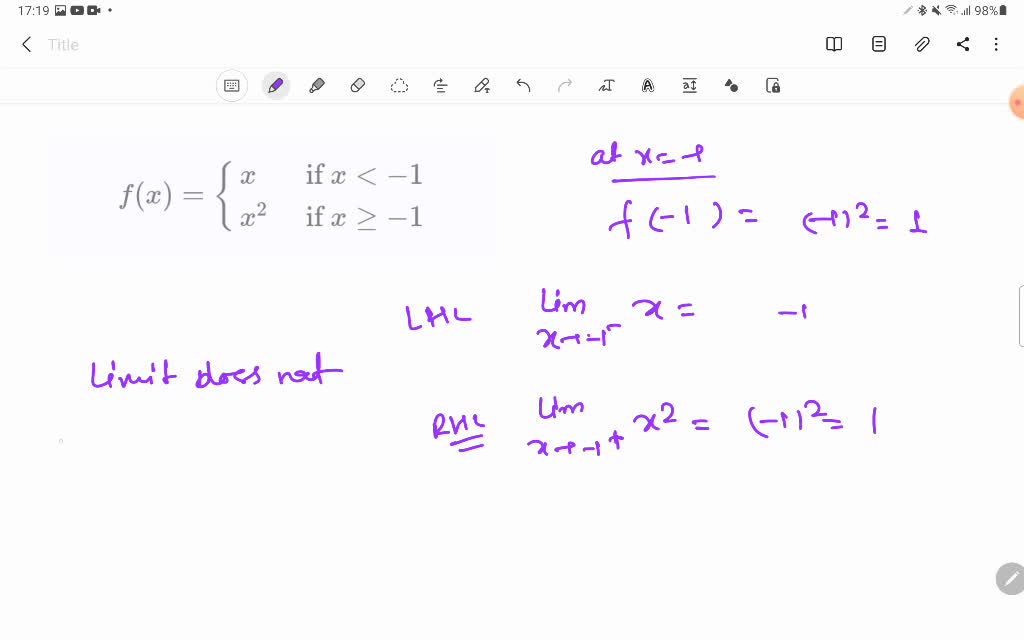 17:19 98%
Title
f(x) = { x if x < −1
x² if x ≥ −1
at x = -1
f(-1) = (-1)² = 1
LHL lim x→-1⁻ x = -1
Limit does not
RHL lim x→-1⁺ x² = (-1)² = 1